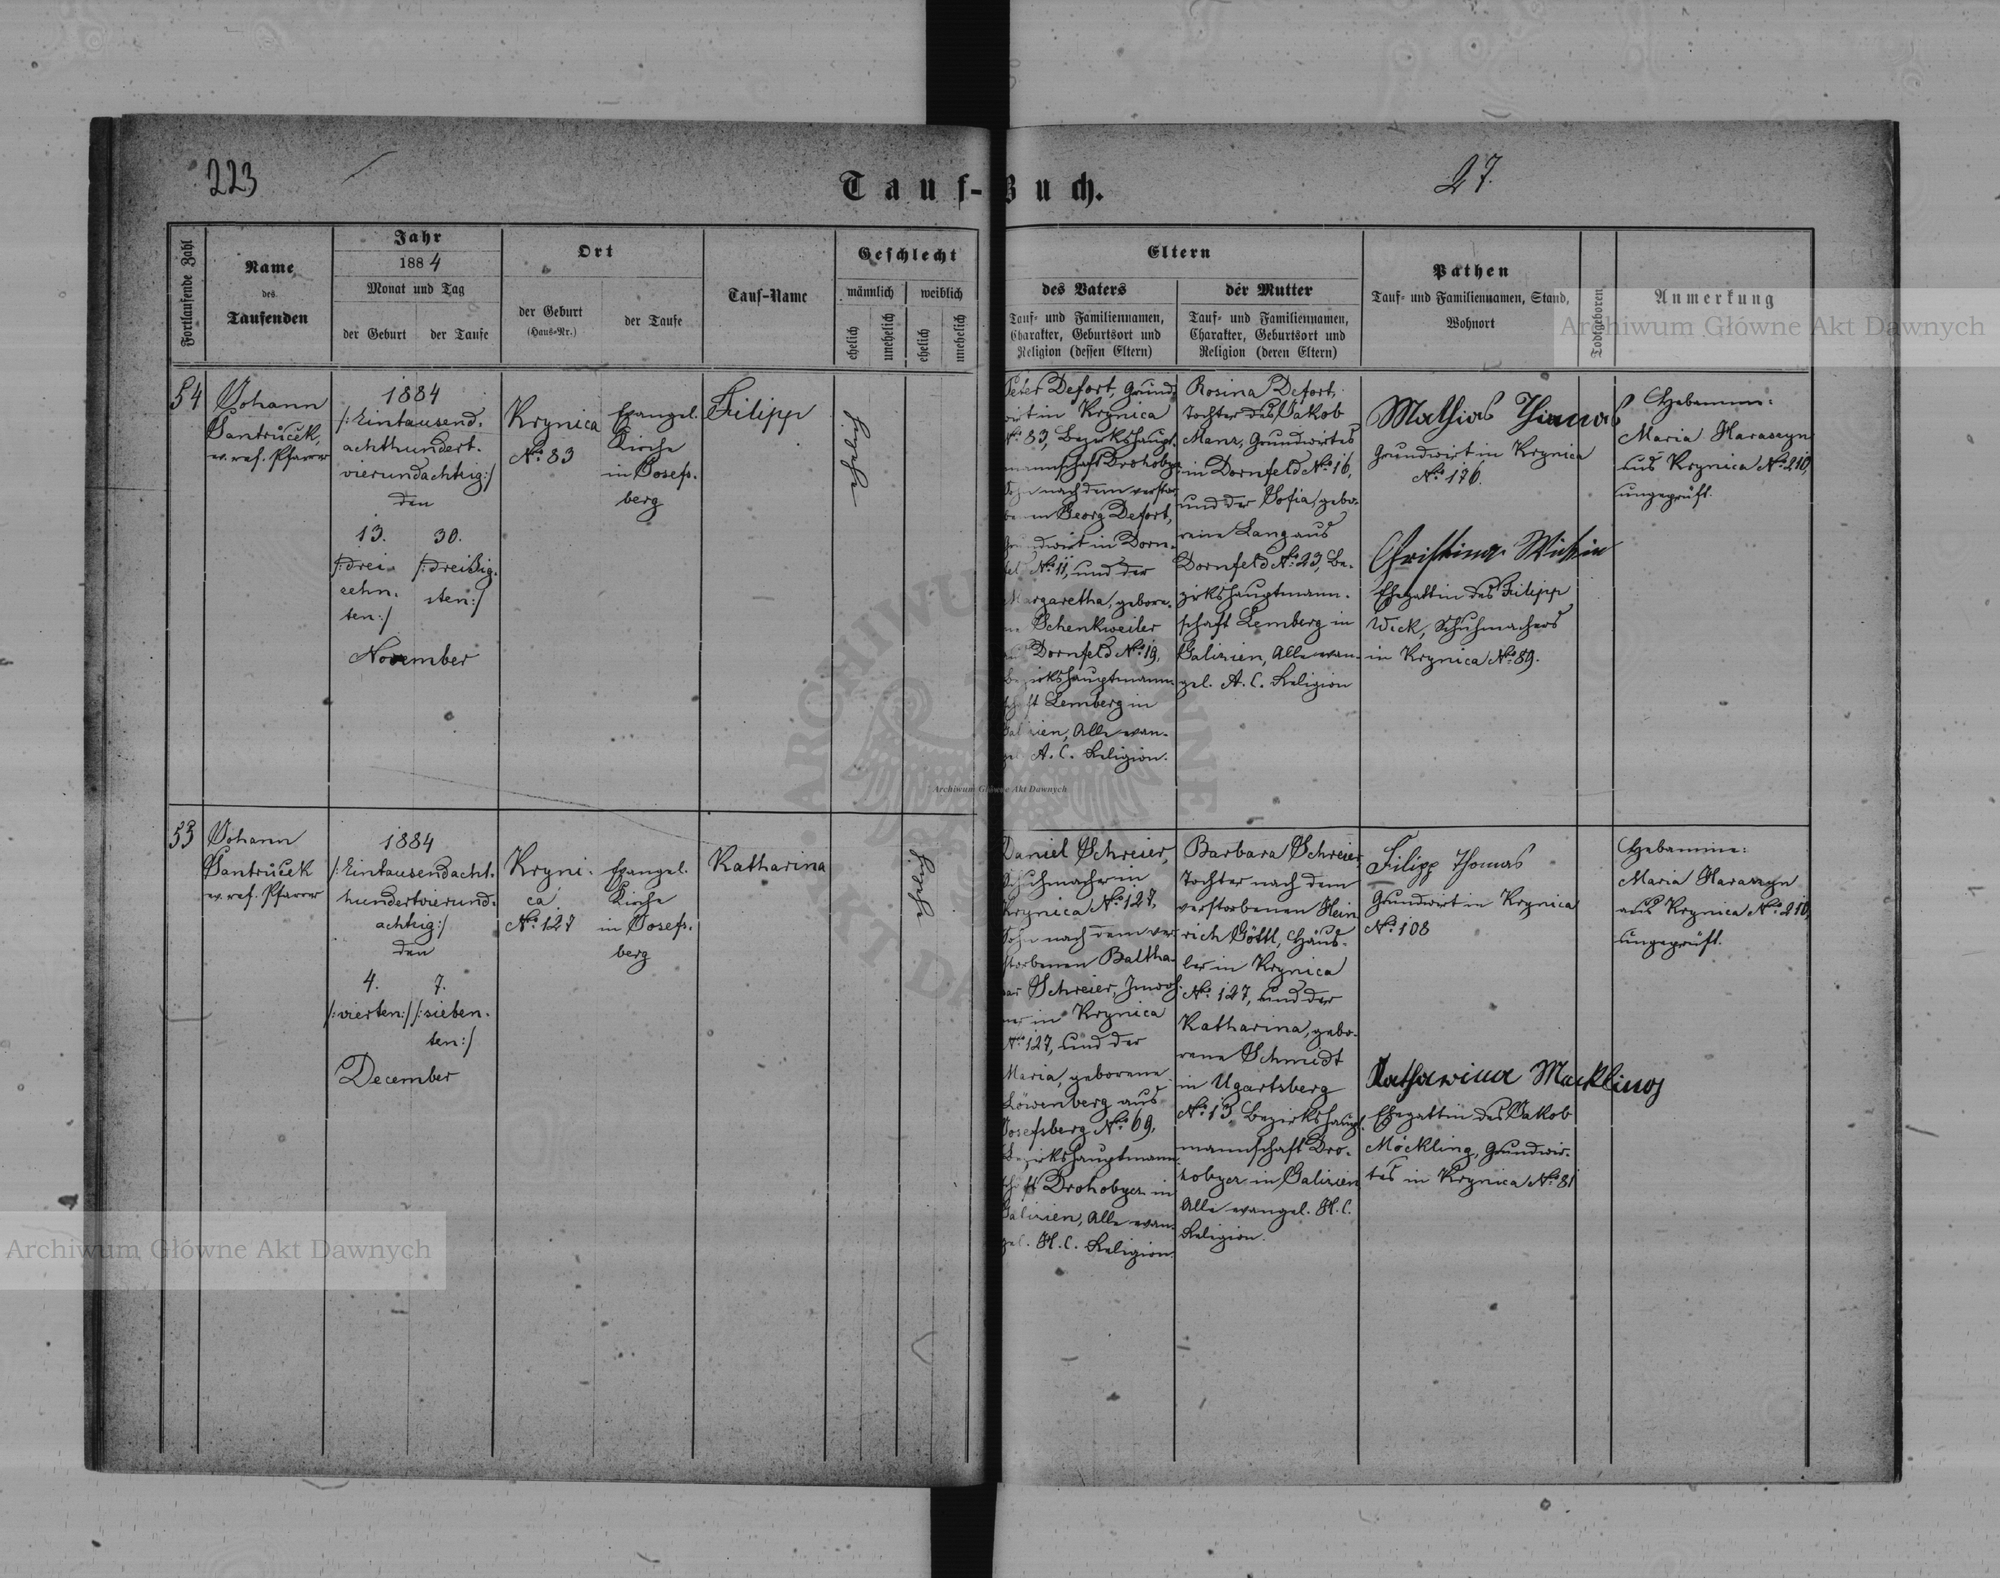 223
27.
Tauf-Buch.
Fortlaufende Zahl
Name
des
Taufenden
Jahr
1884
Monat und Tag
der Geburt
der Taufe
Ort
der Geburt
(Haus-Nr.)
der Taufe
Tauf-Name
Geschlecht
männlich
weiblich
ehelich
unehelich
ehelich
unehelich
Eltern
des Vaters
Tauf- und Familiennamen,
Charakter, Geburtsort und
Religion (dessen Eltern)
der Mutter
Tauf- und Familiennamen,
Charakter, Geburtsort und
Religion (deren Eltern)
Pathen
Tauf- und Familiennamen, Stand,
Wohnort
Todtgeboren
Anmerkung
54
Johann
Jantrůček,
ev. ref. Pfarrer
1884
/:Eintausend.
achthundert.
vierundachtzig:/
den
13.
30.
/:drei
zehn.
ten:/
/:dreißig.
sten:/
November
Krynica
No. 83
Evangel.
Kirche
in Josefs.
berg
Filipp
ehelich
Peter Defort, Grund
wirt in Krynica
No. 83, Bezirkshaupt.
mannschaft Drohobycz
Sohn nach dem verstor
benen Georg Defort,
Grundwirt in Dorn.
feld No. 11, und der
Margaretha, gebore.
ne Schenkweiler
aus Dornfeld No. 19,
Bezirkshauptmann
schaft Lemberg in
Galizien, Alle evan.
gel. A. C. Religion.
Rosina Defort,
Tochter des Jakob
Manz, Grundwirtes
in Dornfeld No. 16,
und der Sofia, gebo.
rene Lang aus
Dornfeld No. 23, Be.
zirkshauptmann.
schaft Lemberg in
Galizien, Alle evan.
gel. A. C. Religion
Mathias Thomas
Grundwirt in Krynica
No. 176.
Christina
Ehegattin des Filipp
Wick, Schuhmachers
in Krynica No. 89.
Hebamme:
Maria Haraszyn
aus Krynica No. 210,
ungeprüft.
55
Johann
Jantrůček
ev. ref. Pfarrer
1884
/:Eintausendacht.
hundertvierund.
achtzig:/
den
4.
7.
/:vierten:/
/:sieben.
ten:/
December
Kryni.
ca
No. 127
Evangel.
Kirche
in Josefs.
berg
Katharina
ehelich
Daniel Schreier,
Schuhmacher in
Krynica No. 127,
Sohn nach dem ver
storbenen Baltha.
sar Schreier, Inwoh.
ner in Krynica
No. 127, und der
Maria, geborene
Löwenberg aus
Josefsberg No. 69,
Bezirkshauptmann
schaft Drohobycz in
Galizien, Alle evan.
gel. H. C. Religion.
Barbara Schreier
Tochter nach dem
verstorbenen Hein
rich Göttl, Häus.
ler in Krynica
No. 127, und der
Katharina, gebo.
rene Schmidt
in Ugartsberg
No. 13 Bezirkshaupt.
mannschaft Dro.
hobycz in Galizien
Alle evangel. H. C.
Religion.
Filipp Thomas
Grundwirt in Krynica
No. 108
Katharina Mackling
Ehegattin des Jakob
Möckling, Grundwir.
tes in Krynica No. 81
Hebamme:
Maria Haraszyn
aus Krynica No. 210,
ungeprüft.
Archiwum Główne Akt Dawnych
Archiwum Główne Akt Dawnych
Archiwum Główne Akt Dawnych